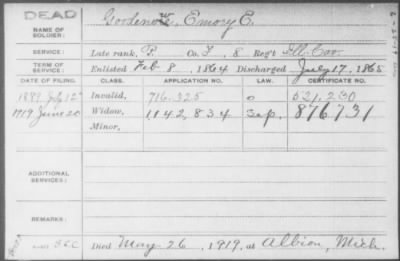 DEAD
NAME OF SOLDIER: Gordenove, Emory E.
SERVICE: Late rank, P. Co. I, 8 Reg't Ill. Cav.
TERM OF SERVICE: Enlisted Feb 8, 1864 Discharged July 17, 1865
DATE OF FILING. CLASS. APPLICATION NO. CERTIFICATE NO.
1889 July 12 Invalid, 716.325 621,230
1919 June 20 Widow, 1142,834 876731
Minor,
ADDITIONAL SERVICES:
REMARKS:
Died May 26, 1919, at Albion, Mich.